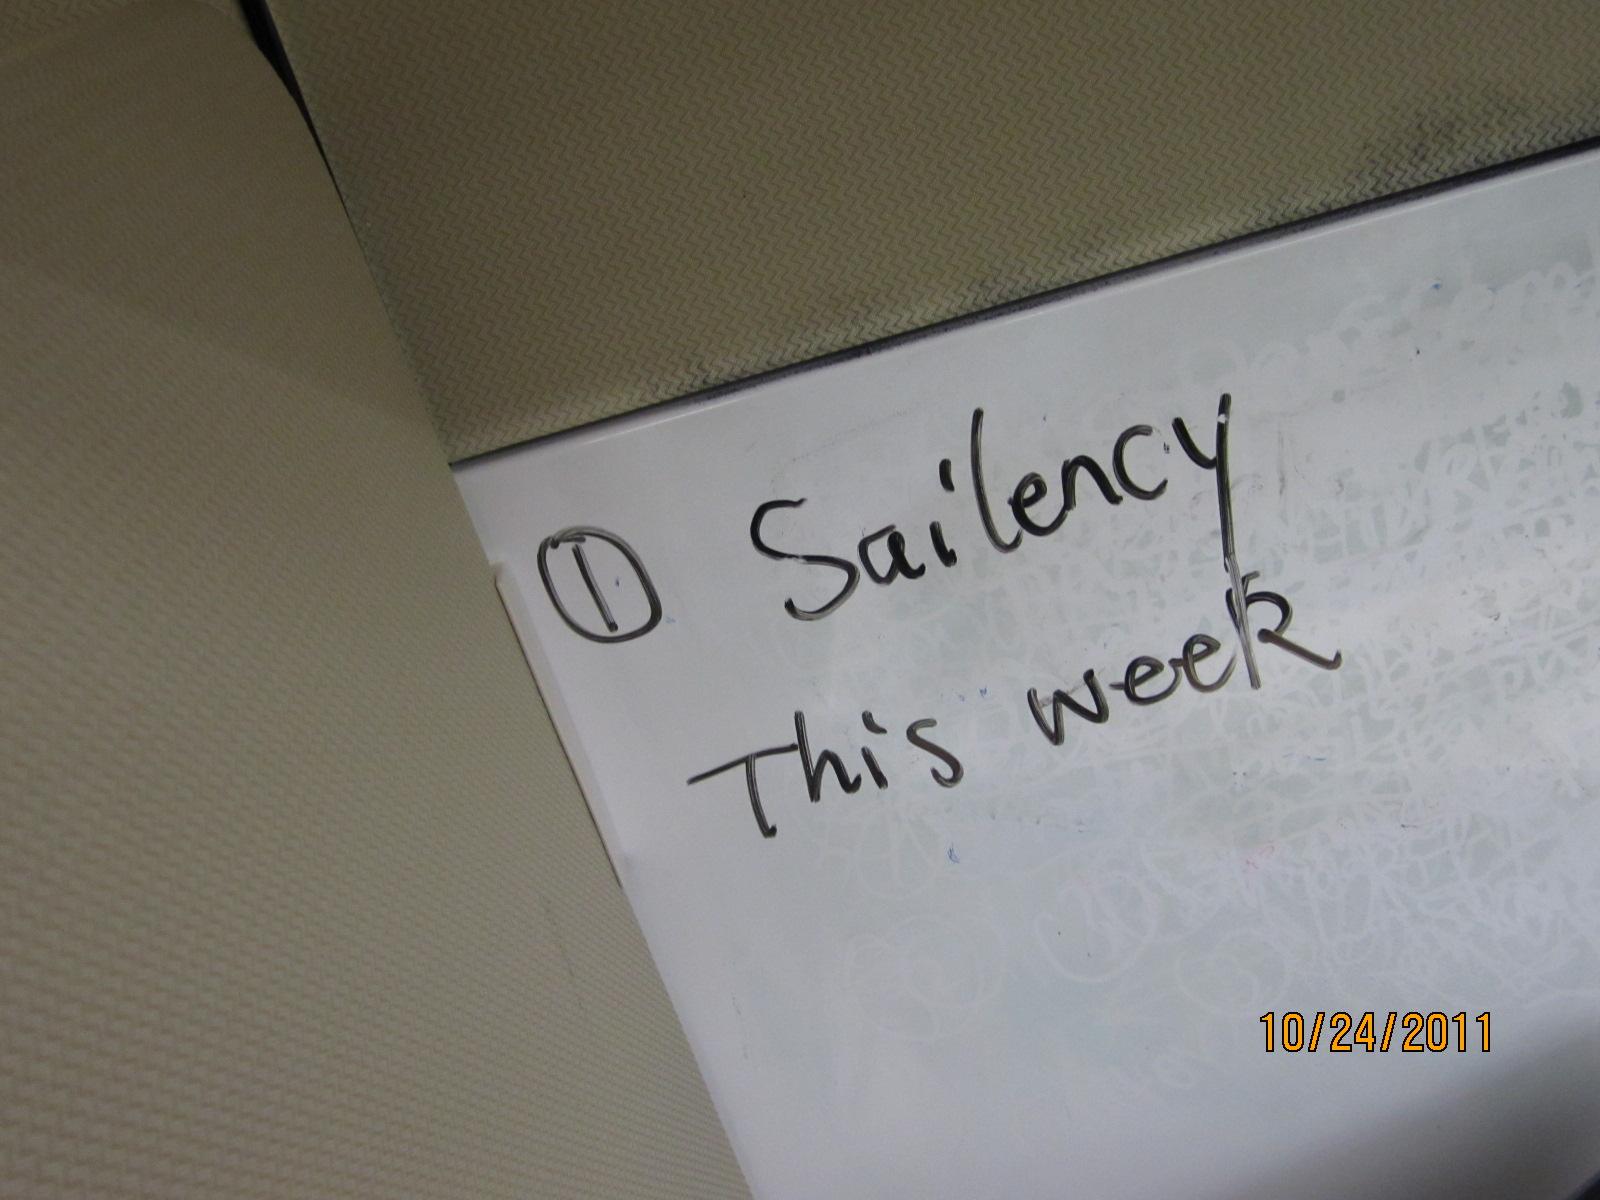 ① Sailency
This week
10/24/2011